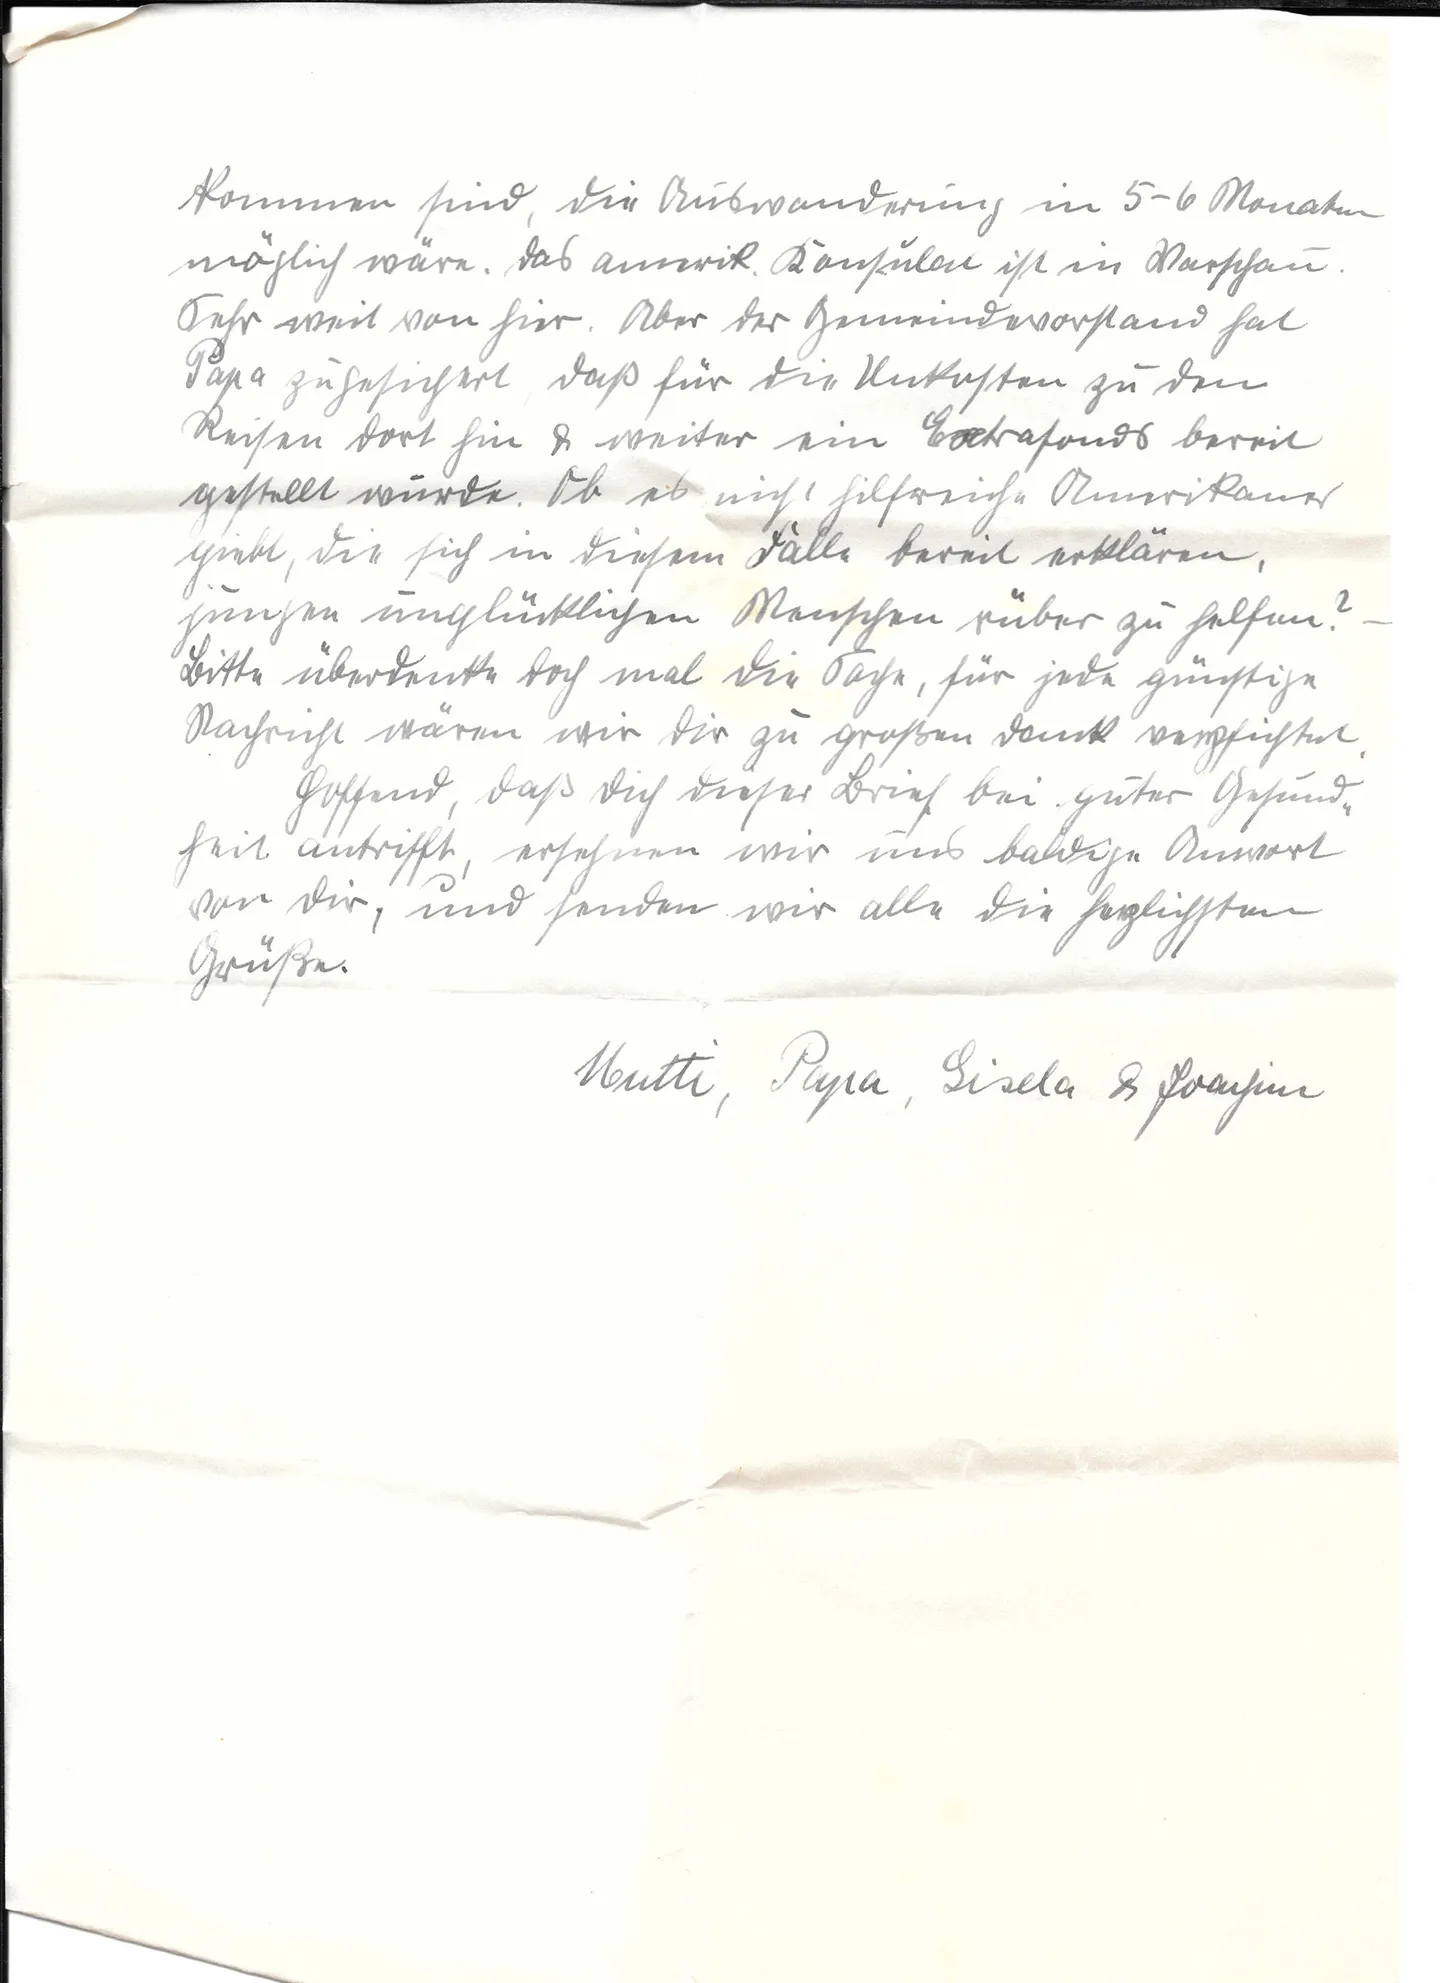 kommen sind, die Auswanderung in 5-6 Monaten
möglich wäre. Das amerik. Konsulat ist in Warschau.
Sehr weit von hier. Aber der Gemeindevorstand hat
Papa zugesichert daß für die Unkosten zu den
Reisen dort hin & weiter ein Extrafonds bereit
gestellt wurde. Ob es nicht hilfreiche Amerikaner
giebt, die sich in diesem Falle bereit erklären,
jungen unglücklichen Menschen rüber zu helfen? –
Bitte überdenke doch mal die Sache, für jede günstige
Nachricht wären wir dir zu großen Dank verpflichtet.
Hoffend, daß dich dieser Brief bei guter Gesund-
heit antrifft, ersehnen wir uns baldige Anwort
von dir, und senden wir alle die herzlichsten
Grüße.
Mutti, Papa, Gisela & Joachim